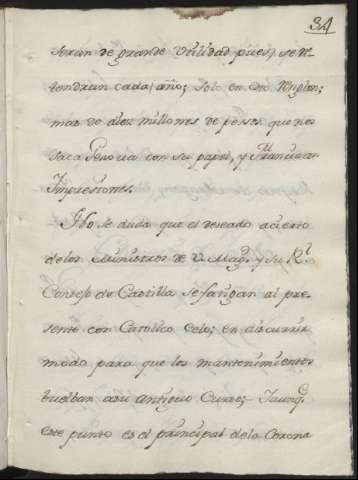 34
seran de grande Utilidad pues, se re-
tendran cada año; solo en este Renglon;
mas de diez millones de pesos que nos
saca Genova con su papel, y Francia
Impresiones.
No se duda que el deseado acierto
de los Ministros de V. Mag.d y su R.l
Consejo de Castilla se fatigan al pre-
sente con Catolico Celo; en discurrir
modo para que los mantenimientos
buelban asu antiguo Curso; Iaunq.
este punto es el principal dela Corona